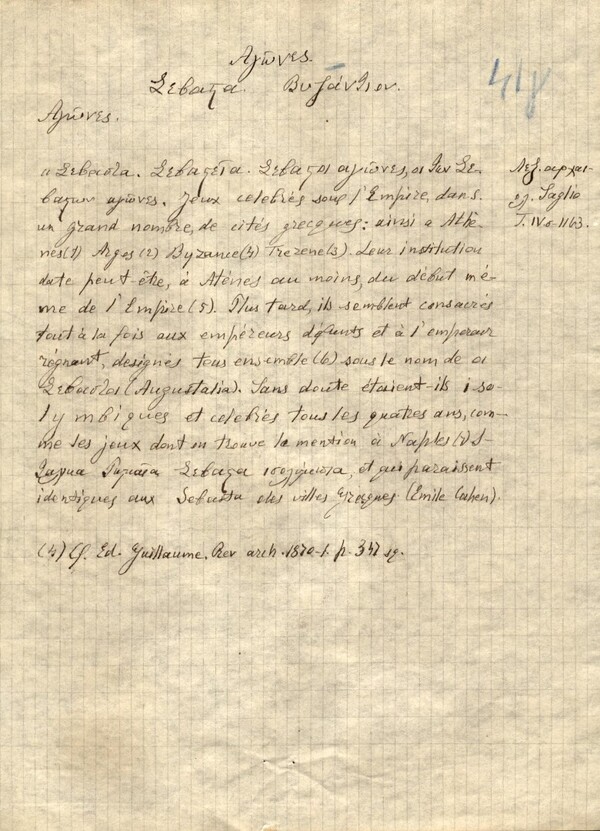 Αγῶνες.
Σεβαστα. Βυζάντιον.
418
Αγῶνες.
Σεβαστα. Σεβαστεῖα. Σεβαστοι αγῶνες, οι των Σε-
βαστων αγῶνες. Jeux celebrés sous l'Empire, dans
un grand nombre, de cités grecques: ainsi a Athè-
nes(1) Argos (2) Byzance(4) Trezene(3). Leur institution
date peut-être, à Atènes au moins, du début mê-
me de l'Empire (5). Plus tard, ils semblent consacrés
tout à la fois aux empéreurs défunts et à l'empereur
régnant, designés tous ensemble (6) sous le nom de οι
Σεβαστοι (Augustalia). Sans doute étaient-ils iso-
lymbiques et celebrés tous les quatres ans, com-
me les jeux dont on trouve la mention à Naples
Σεβαστα et qui paraissent
identiques aux Sebasta des villes grecques (Emile Cahen).
(4) Cf. Ed. Guillaume. Rev arch. 1870-1. p. 347 sq.
Λεξ. αρχαι-
ολ. Saglio
T. IVe-1163.